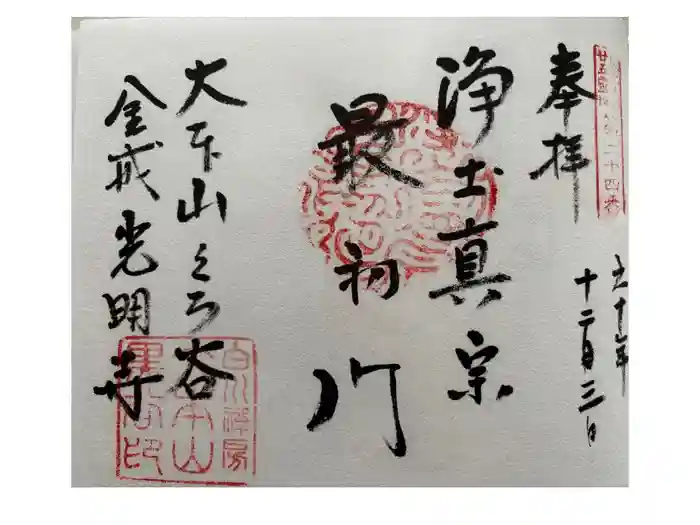 奉拝
五十年
十二月三日
浄土真宗
最初門
大本山くろ谷
金戒光明寺